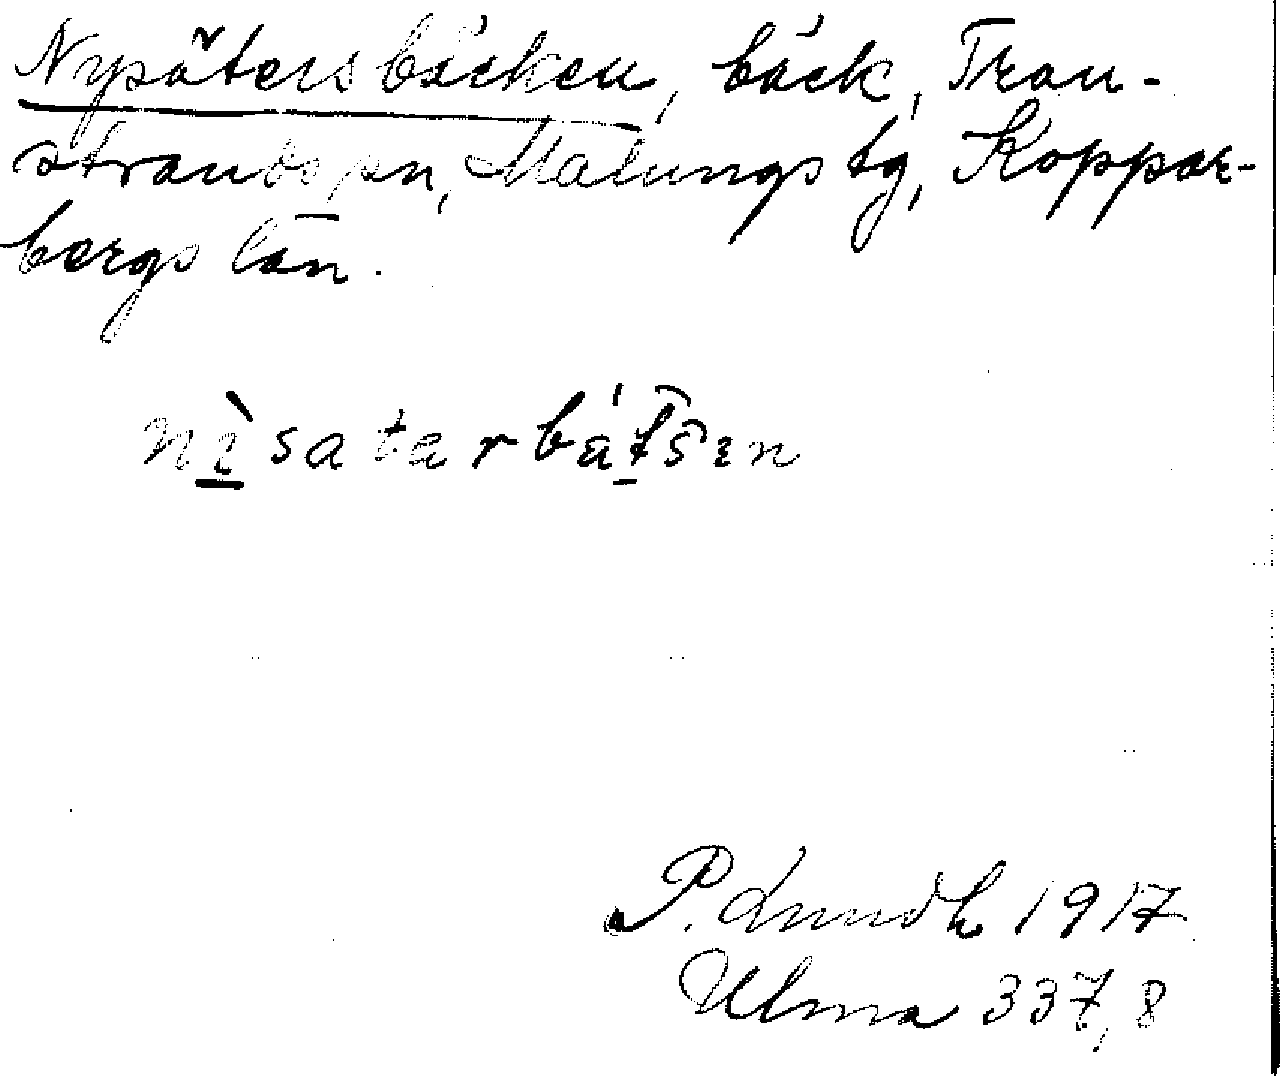 Nysätersbäcken, bäck, Tran-
strands sn, Malungs tg, Koppar-
bergs län.
P. Lundh 1917
Ulma 337,8